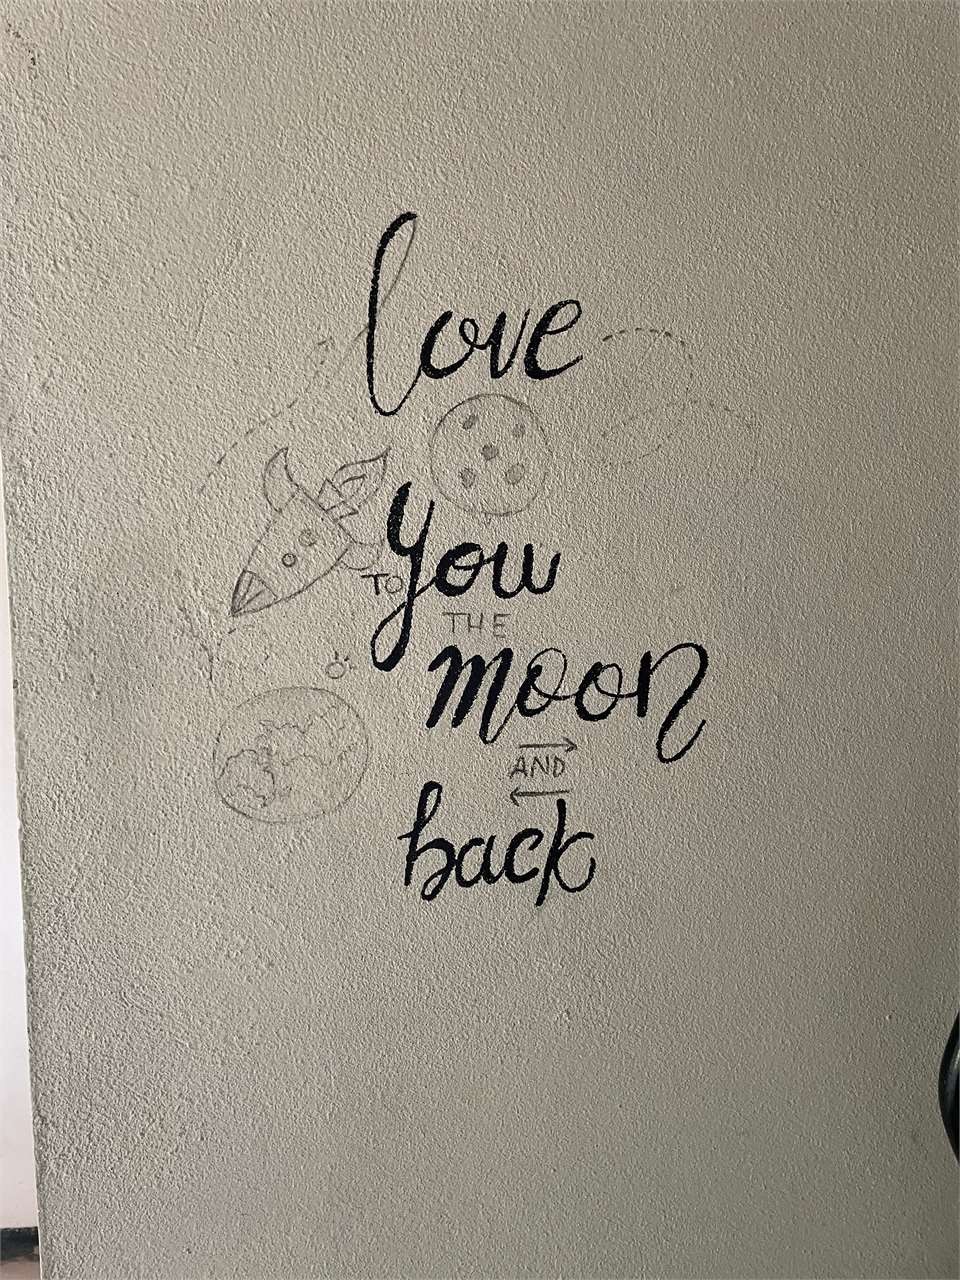 love
you
TO
THE
moon
AND
back